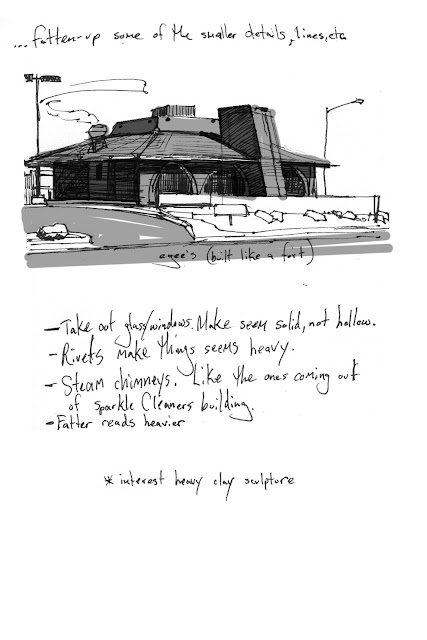 ...fatten-up some of the smaller details, lines, etc.
eyee's (built like a fort)
-Take out glass/windows. Make seem solid, not hollow.
-Rivets make things seems heavy.
-Steam chimneys. Like the ones coming out
of sparkle Cleaners building.
-Fatter reads heavier
* interest heavy clay sculpture